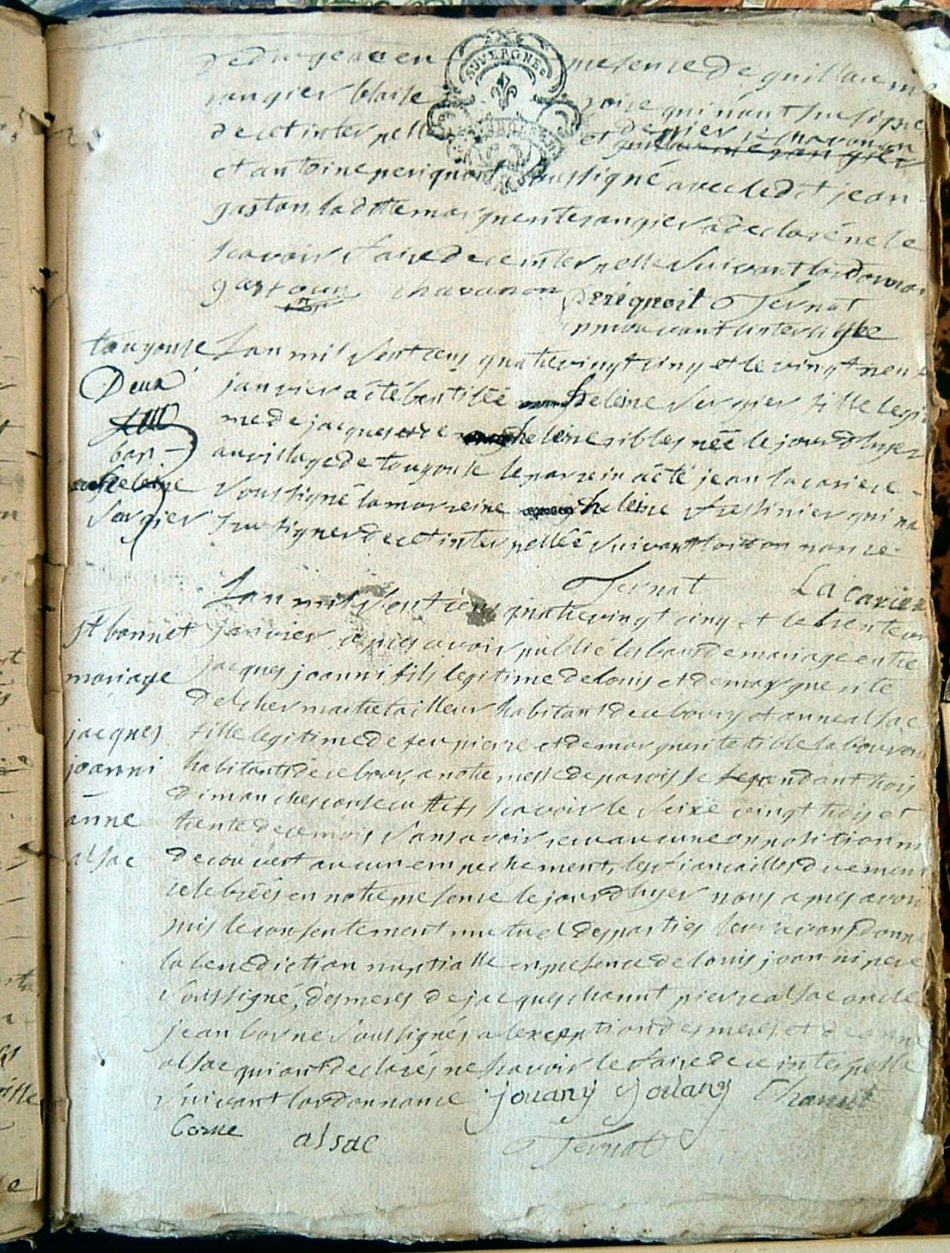 de dugeaà en presence de guillaume
rangier blaise qui n'ont sçu signe
de ce interpellé et
et antoine perignon soussigné avec ledt jean
gaston, ladite marguerite rangier a declaré ne le
scavoir faire de ce interpellé suivant lordonnan
AUVERGNE
gastoun chavanon perignoit Fernat
approuvant linterligne
tougouse
Deux
bap
heleine
Vergier
Lan mil sept cens quatrevingt cinq et le vingt neuf
janvier a été baptisée heleine Vergier fille legi
me de jacques et de heleine sibles née le jour d'hyer
au village de tougouse le parrein a été jean lacariere
soussigné la marreine heleine Fressinier qui na
sçu signer de ce interpellée suivant lordonnance
Fernat Lacarier
st bonnet
mariage
jacques
joanni
anne
alsac
Lan mil sept cens quatrevingt cinq et le trente un
janvier apres avoir publié les bans de mariage entre
jacques joanni fils legitime de louis et de marguerite
delcher maitre tailleur habitant de ce bourg et anne alsac
fille legitime de feu pierre et de marguerite tible laboureur
habitants de ce bourg a notre messe de paroisse pendant trois
dimanches consecutifs scavoir le seize vingt trois et
trente de ce mois sans avoir reçu aucune opposition ni
decouvert aucun empechement, les fiancailles duement
celebrées en notre presence le jour d'hyer nous apres avoir
pris le consentement mutuel des parties leur avons donné
la benediction nuptialle en presence de louis joanni pere
soussigné, des meres de jacques chanut pierre alsac oncle
jean borne soussignés a lexception des meres et de anne
alsac qui ont declarés ne scavoir le faire de ce interpellé
suivant lordonnance jouany joùany Chanut
Borne alsac Fernat